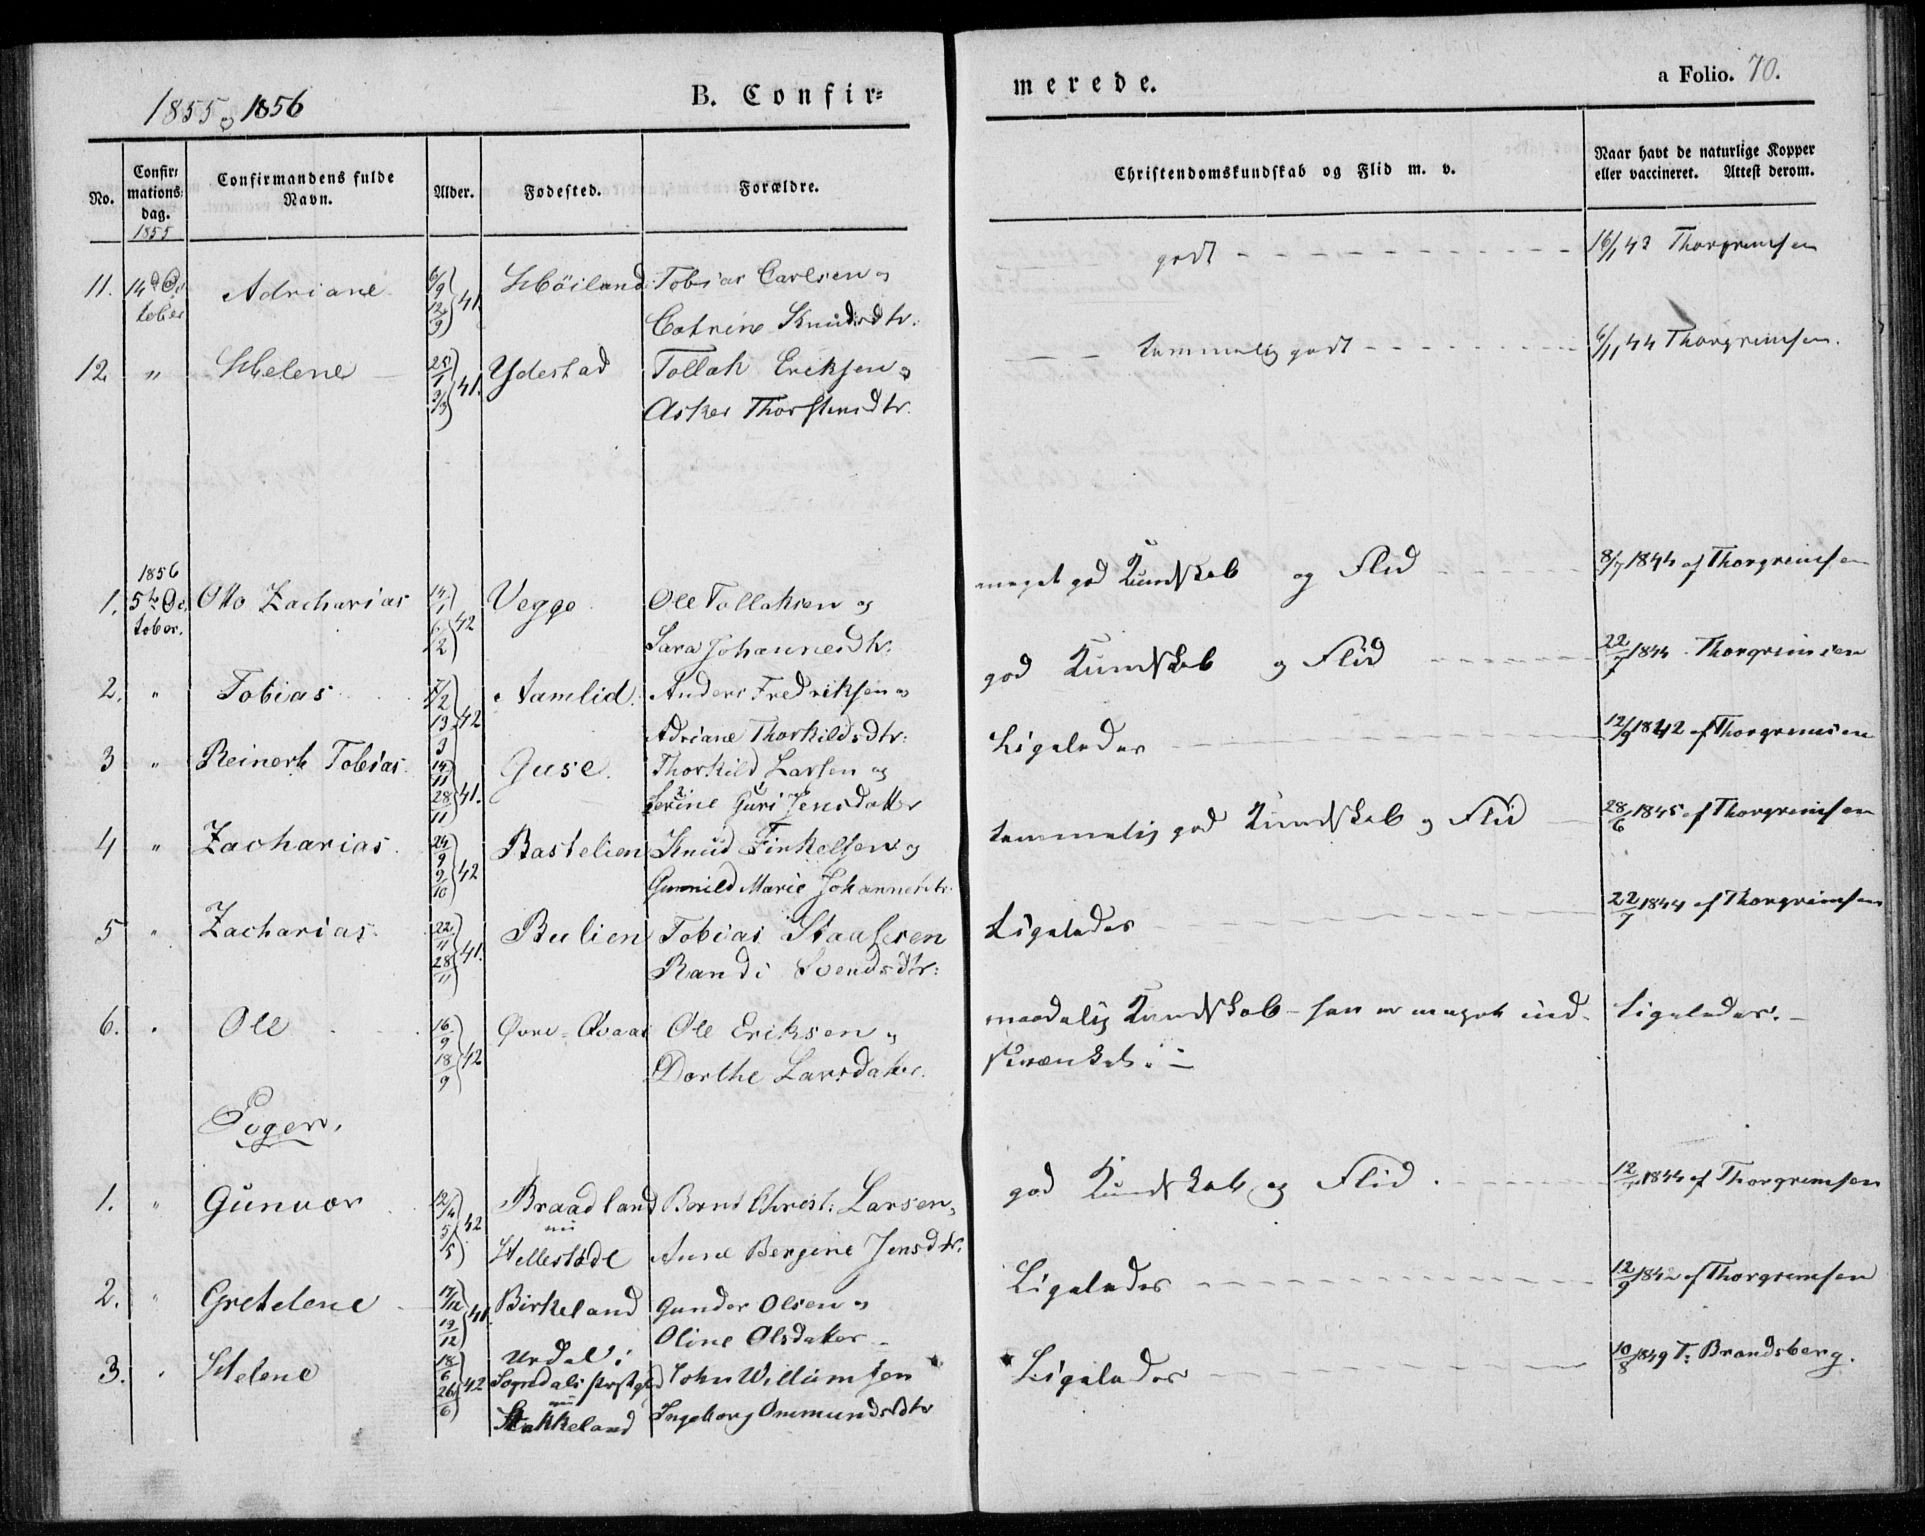 1855 og 1856
B. Confir=
merede.
a Folio. 70.
No.
Confir=
mations=
dag.
1855
Confirmandens fulde
Navn.
Alder.
Fødested.
Forældre.
Christendomskundskab og Flid m. v.
Naar havt de naturlige Kopper
eller vaccineret. Attest derom.
11. 14d Oc Adriane 6/9 12/9 41. Høiland Tobias Carlsen og godt 16/1 43 Thorgrimsen
tober Catrine Knudsdtr:
12 " Helene 25/1 3/3 41. Ydestad Tollak Eriksen og temmelig godt 6/11 44 Thorgrimsen.
Asker Thorstensdtr.
1856
1. 5te Oc Otto Zacharias 14/1 6/2 42 Vegge Ole Tollaksen og meget god Kundskab og Flid 8/7 1844 af Thorgrimsen
tober. Sara Johannesdtr.
2. " Tobias 7/2 13/3 42 Aamlid. Anders Fredriksen og god Kundskab og Flid 22/7 1844 Thorgrimsen
Adriane Thorkildsdtr:
3 " Reinert Tobias 14/11 28/11 41. Guse. Thorkild Larsen og Ligeledes 12/9 1842 af Thorgrimsen
Serine Guri Jensdatter
4 " Zacharias. 24/9 9/10 42 Bastelien Knud Finkelsen og temmelig god Kundskab og Flid 28/6 1845 af Thorgrimsen
Gunnild Marie Johannesdtr.
5 " Zacharias. 22/11 28/11 41. Bulien Tobias Staalesen Ligeledes 22/7 1844 af Thorgrimsen
Randi Svendsdtr:
6. " Ole 16/9 18/9 42 Øvre-Qvaas Ole Eriksen og maadelig Kundskab - han er meget ind- Ligeledes.
Dorthe Larsdatter. skrænket.
Piger.
1. " Gunvor 12/4 5/5 42 Braadland Bernt Christ: Larsen, god Kundskab og Flid. 12/ 1844 af Thorgrimsen
nu
Hellestøl Anne Bergine Jensdtr.
2. " Gretelene 17/12 19/12 41 Birkeland Gunder Olsen og Ligeledes 12/9 1842 af Thorgrimsen
Oline Olsdatter
3. " Helene 18/6 26/6 42 Urdal i Sogndals Prstgld John Willumsen Ligeledes 10/8 1849 T: Brandsberg.
nu
Stakkeland Ingeborg Ommundsdtr